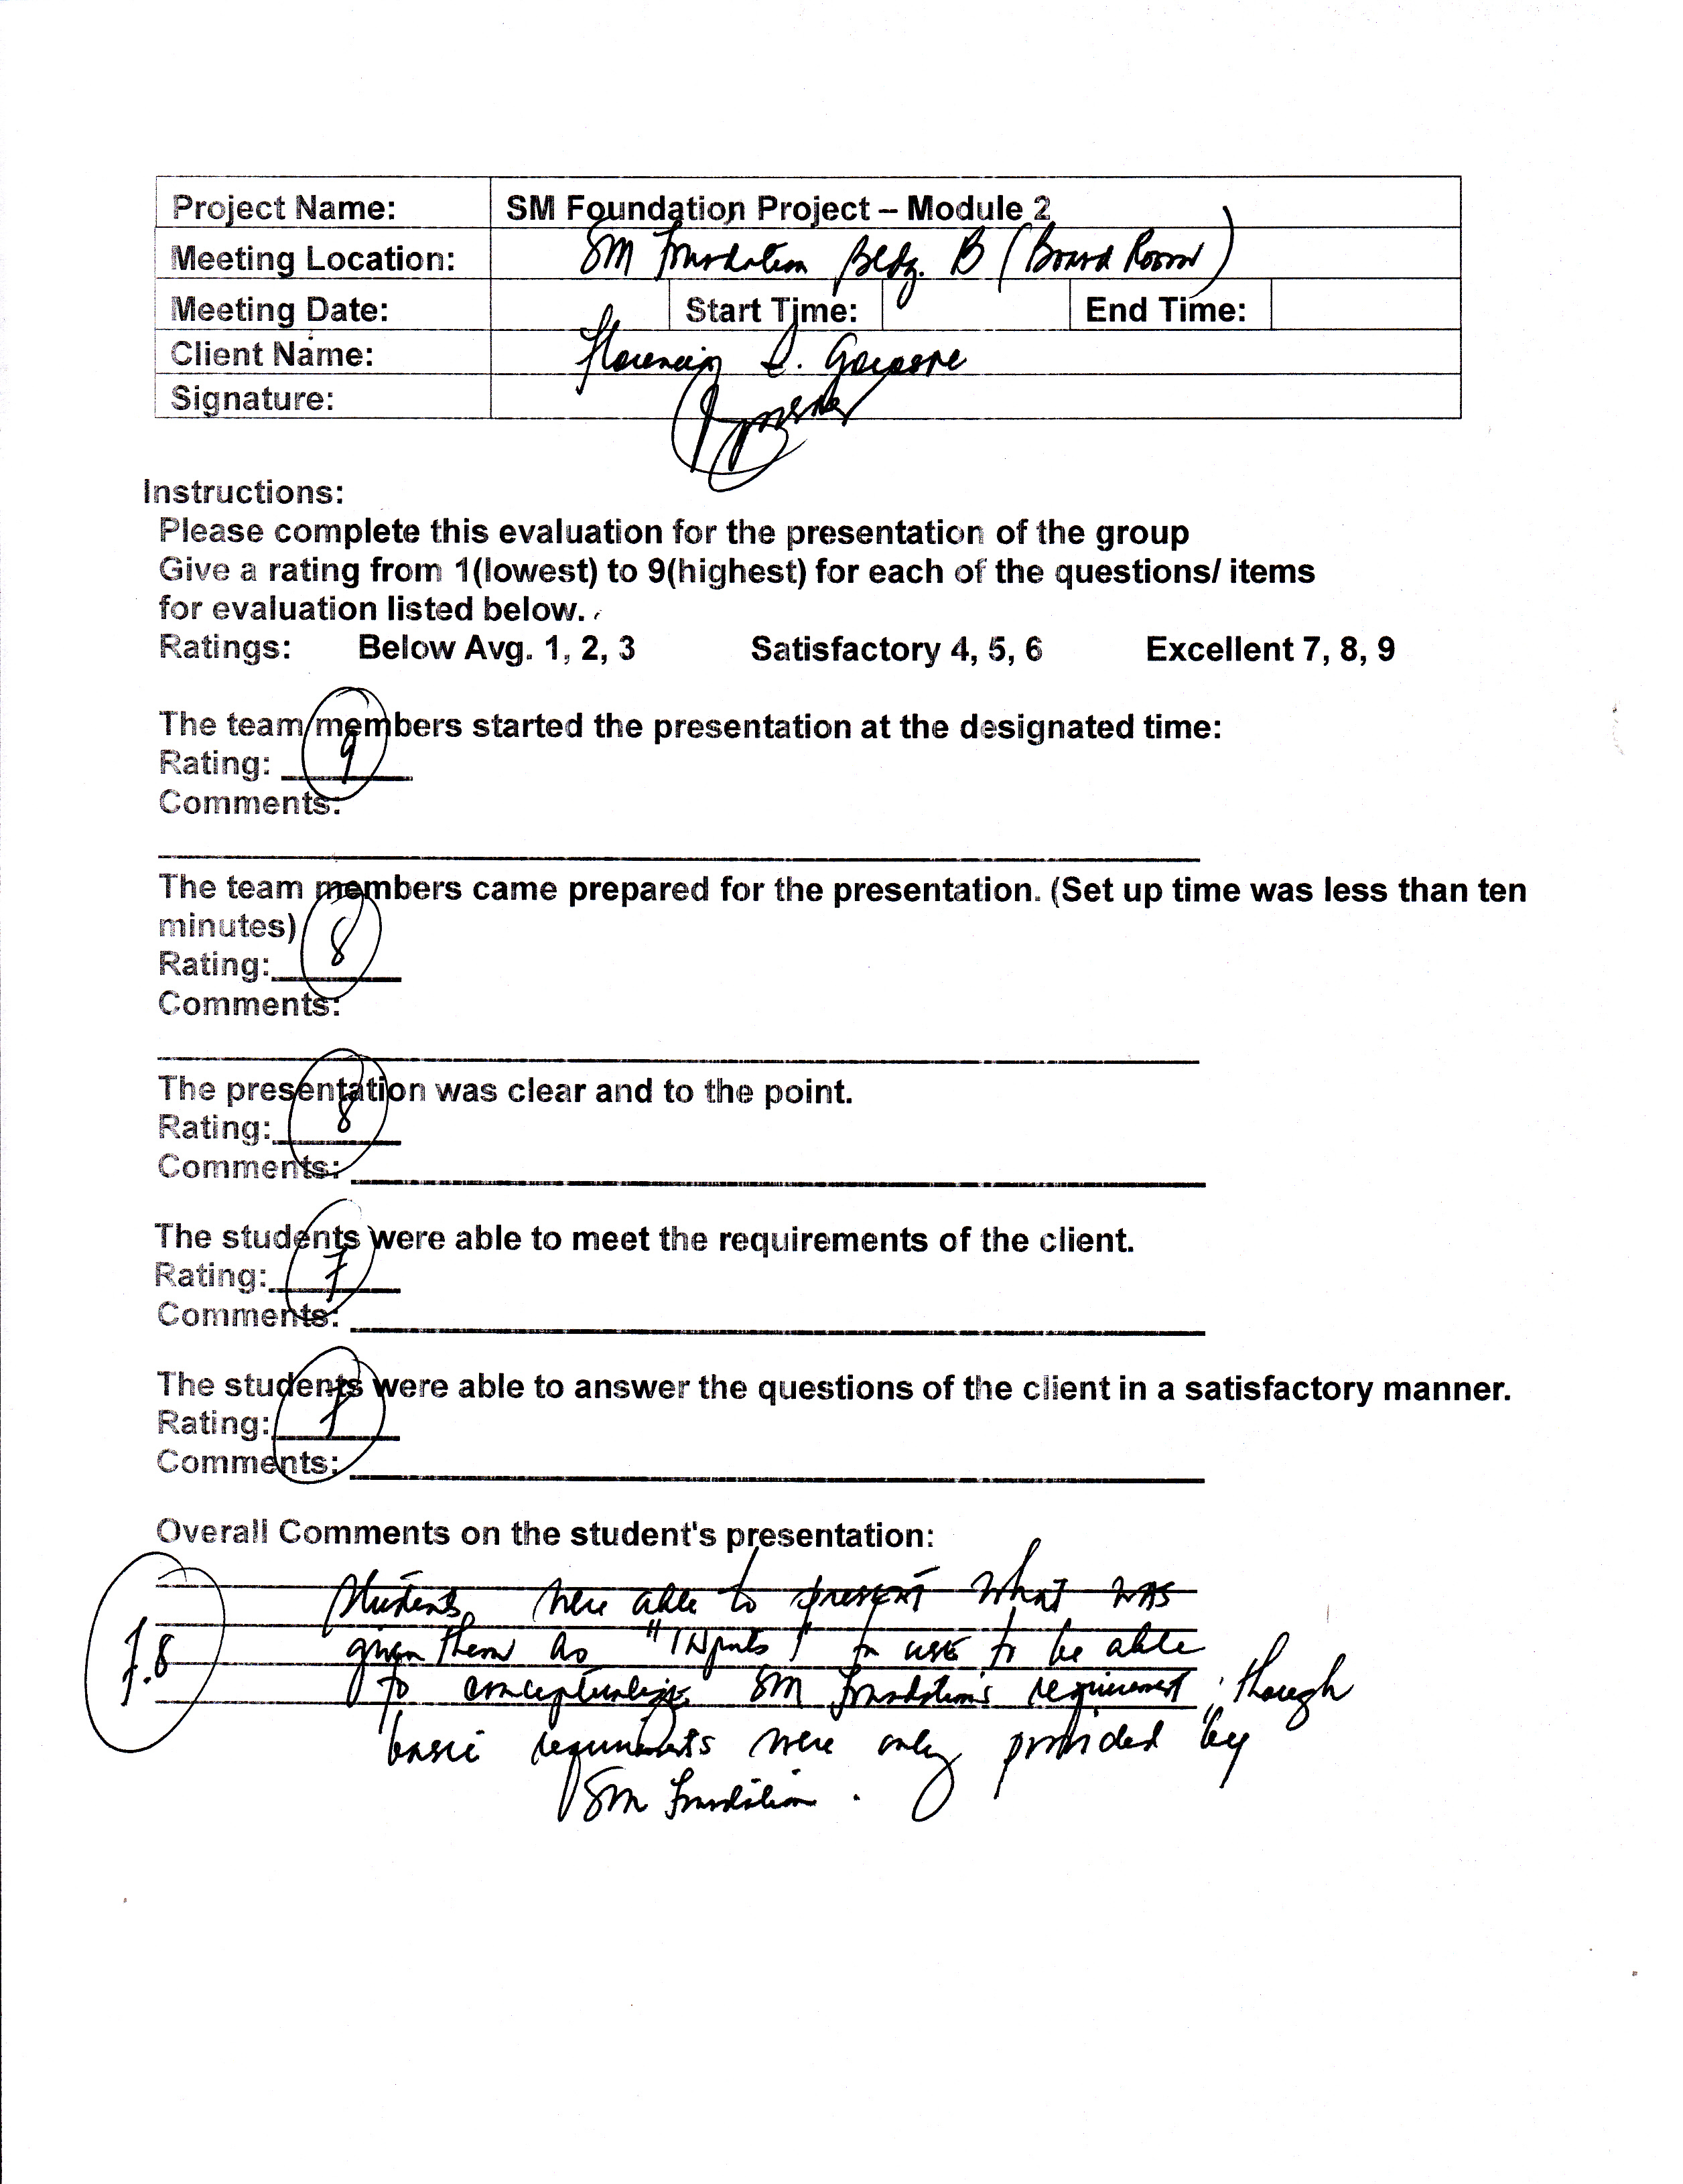 Project Name: SM Foundation Project – Module 2
Meeting Location: SM Foundation Bldg. B (Board Room)
Meeting Date: Start Time: End Time:
Client Name:
Signature:
Instructions:
Please complete this evaluation for the presentation of the group
Give a rating from 1(lowest) to 9(highest) for each of the questions/ items
for evaluation listed below.
Ratings: Below Avg. 1, 2, 3 Satisfactory 4, 5, 6 Excellent 7, 8, 9
The team members started the presentation at the designated time:
Rating: 9
Comments:
The team members came prepared for the presentation. (Set up time was less than ten
minutes)
Rating: 8
Comments:
The presentation was clear and to the point.
Rating: 8
Comments:
The students were able to meet the requirements of the client.
Rating: 7
Comments:
The students were able to answer the questions of the client in a satisfactory manner.
Rating: 7
Comments:
Overall Comments on the student's presentation:
Students were able to present what was
7.8 given them as "INputs" to use to be able
to conceptualize SM Foundation's requirement; though
basic requirements were only provided by
SM Foundation.